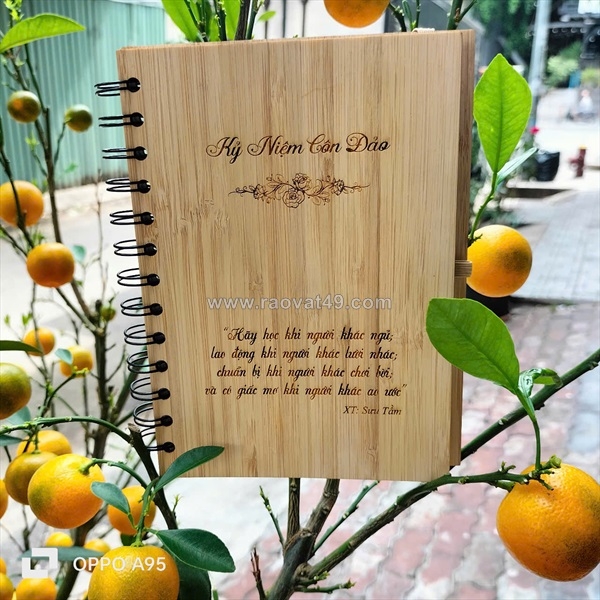 Kỷ Niệm Côn Đảo
www.raovat49.com
"Hãy học khi người khác ngủ;
lao động khi người khác lười nhác;
chuẩn bị khi người khác chơi bời;
và có giấc mơ khi người khác ao ước"
XT: Sưu Tầm
OPPO A95